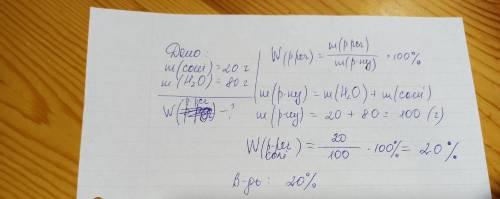 Дано:
m(солі) = 20 г
m(H₂O) = 80 г
W(р.реч) - ?
W(р.реч) = m(р.реч) / m(р-ну) · 100%
m(р-ну) = m(H₂O) + m(солі)
m(р-ну) = 20 + 80 = 100 (г)
W(р-реч солі) = 20 / 100 · 100% = 20%
В-дь: 20%